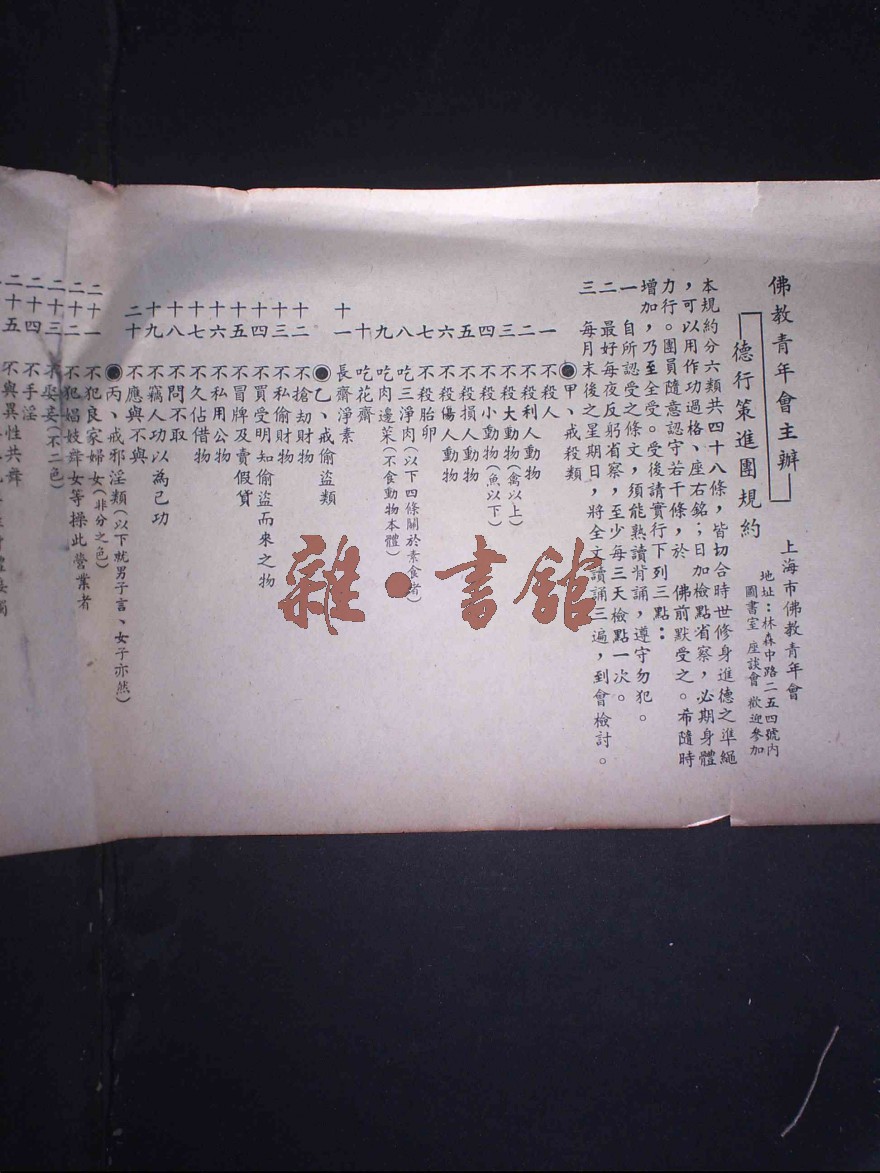 佛教青年會主辦
德行策進團規約
上海市佛教青年會
地址：林森中路二五四號內
圖書室 座談會 歡迎參加
本規約分六類共四十八條，皆切合時世修身進德之準繩
，可以用作功過格、座右銘；日加檢點省察，必期身體
力行。團員隨意認守若干條，於　佛前默受之。希隨時
增加，乃至全受。受後請實行下列三點：
一　自所認受之條文，須能熟讀背誦，遵守勿犯。
二　最好每夜反躬省察，至少每三天檢點一次。
三　每月末後之星期日，將全文讀誦三遍，到會檢討。
甲、戒殺類
一　不殺人
二　不殺利人動物
三　不殺大動物（禽以上）
四　不殺小動物（魚以下）
五　不殺損人動物
六　不殺傷人動物
七　不殺胎卵
八　吃三淨肉（以下四條關於素食者）
九　吃肉邊菜（不食動物本體）
十　吃花齋
十一　長齋淨素
乙、戒偷盜類
十二　不搶劫財物
十三　不私偷財物
十四　不買受明知偷盜而來之物
十五　不冒牌及賣假貨
十六　不私用公物
十七　不久佔借物
十八　不問不取
十九　不竊人功以為己功
二十　不應與不與
丙、戒邪淫類（以下就男子言、女子亦然）
二十一　不犯良家婦女（非分之色）
二十二　不犯娼妓舞女等操此營業者
二十三　不娶妾（不二色）
二十四　不手淫
二十五　不與異性共舞
雜·書館